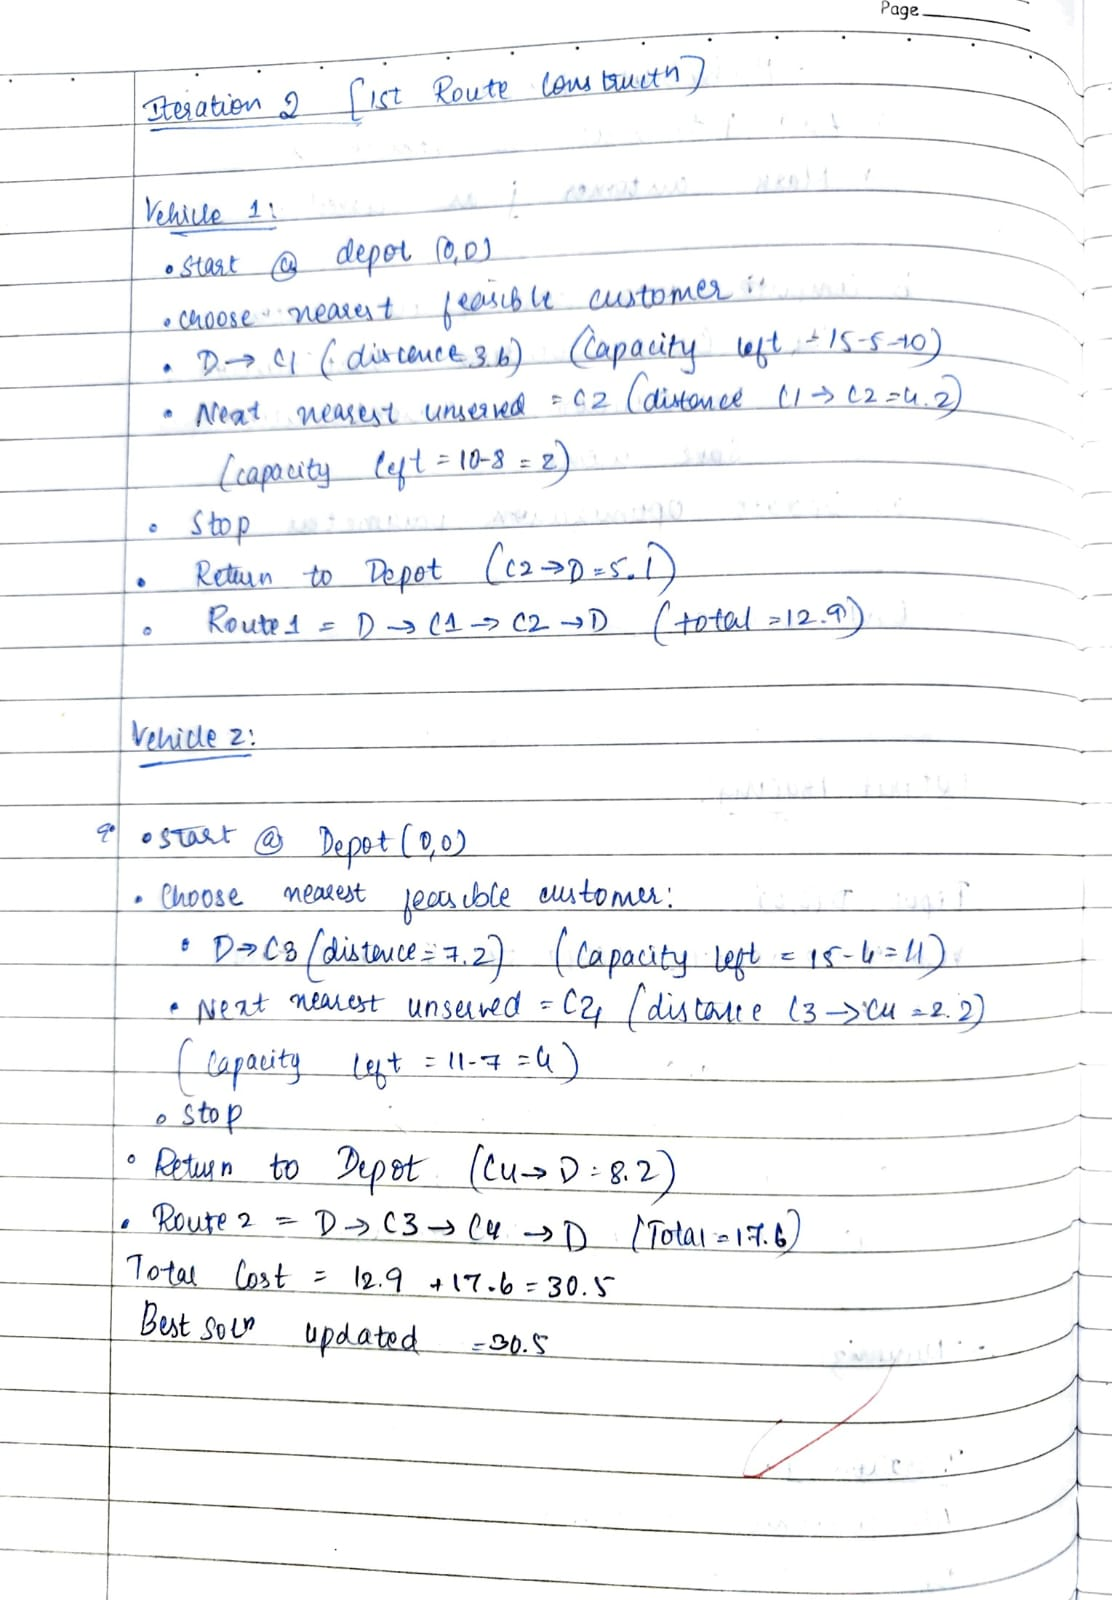 Page
Iteration 2 [1st Route Constructn]
Vehicle 1:
• Start @ depot (0,0)
• choose nearest feasible customer :
• D → C1 (distence 3.6) (Capacity left = 15-5-10)
• Next nearest unserved = C2 (distance C1 → C2 = 4.2)
(capacity left = 10-8 = 2)
• Stop
• Return to Depot (C2 → D = 5.1)
• Route 1 = D → C1 → C2 → D (total = 12.9)
Vehicle 2:
• Start @ Depot (0,0)
• Choose nearest feasible customer:
• D → C3 (distence = 7.2) (Capacity left = 15-4 = 11)
• Next nearest unserved = C4 (distance C3 → C4 = 2.2)
(Capacity left = 11-7 = 4)
• Stop
• Return to Depot (C4 → D = 8.2)
• Route 2 = D → C3 → C4 → D (Total = 17.6)
Total Cost = 12.9 + 17.6 = 30.5
Best soln updated = 30.5